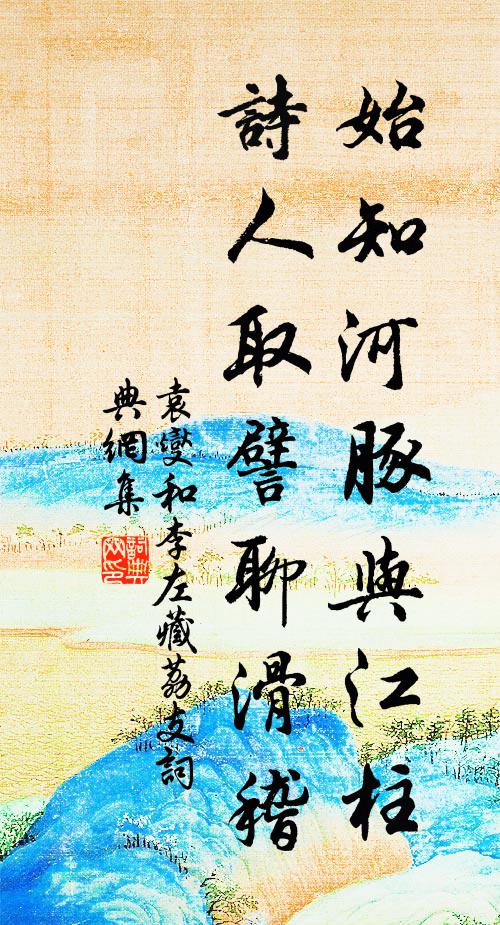 始知河豚與江柱
詩人取譬聊滑稽
袁燮和李左藏荔支詞
典網集
詞典網印